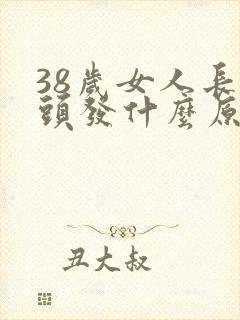 38歲女人長
頭發什麼原
丑大叔